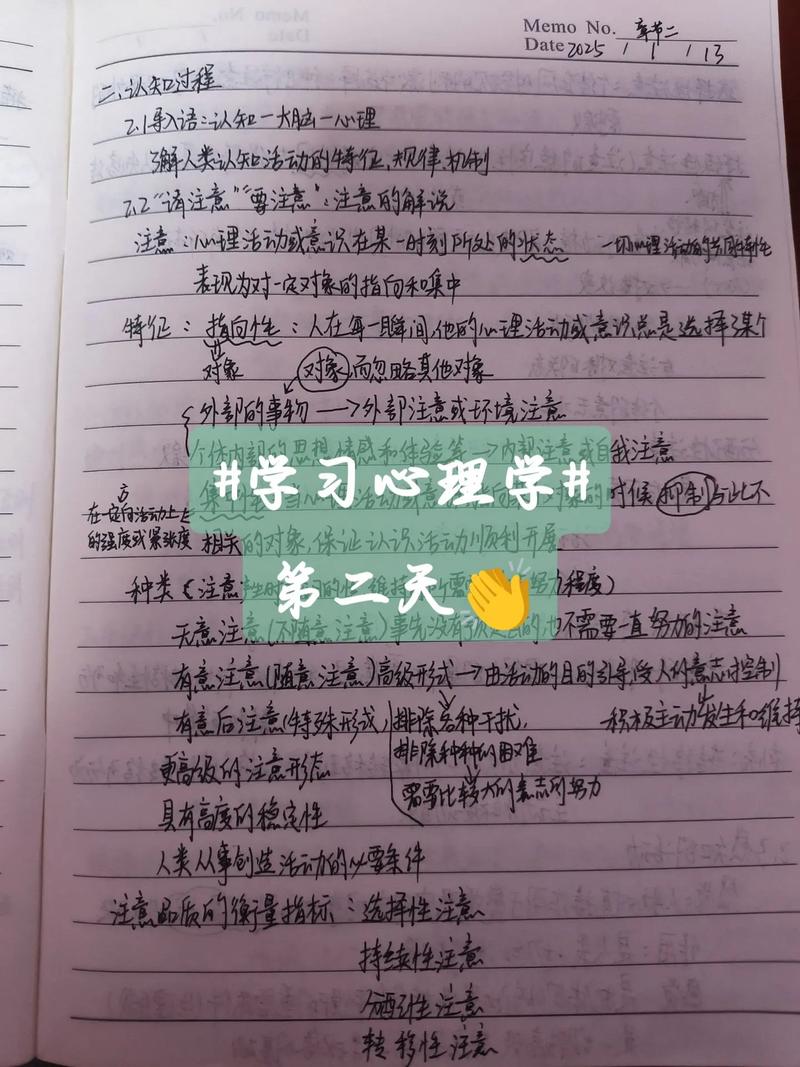 Memo No. 章节二
Date 2025 / 1 / 13
二、认知过程
2.1导入语:认知—大脑—心理
了解人类认知活动的特征、规律、机制
2.2"请注意""要注意":注意的解说
注意:心理活动或意识在某一时刻所处的状态 一切心理活动的共同特性
表现为对一定对象的指向和集中
特征:指向性:人在每一瞬间,他的心理活动或意识总是选择了某个
对象 对象,而忽略其他对象
外部的事物→外部注意或环境注意
个体内部的思想、情感和体验等→内部注意或自我注意
#学习心理学#
集中性 当心理活动或意识 对象的时候 抑制与此不
在一定向活动上
的强度或紧张度 相关的对象,保证认识活动顺利开展
第二天👏
种类(注意 努力程度)
无意注意(不随意注意)事先没有 的,也不需要一直努力的注意
有意注意(随意注意)高级形式→由活动的目的引导,受人的意志控制
有意后注意(特殊形式) 排除各种干扰, 积极主动发生和维持
更高级的注意形态 排除种种的困难
需要比较大的意志的努力
具有高度的稳定性
人类从事创造活动的必要条件
注意品质的衡量指标:选择性注意
持续性注意
分配性注意
转移性注意